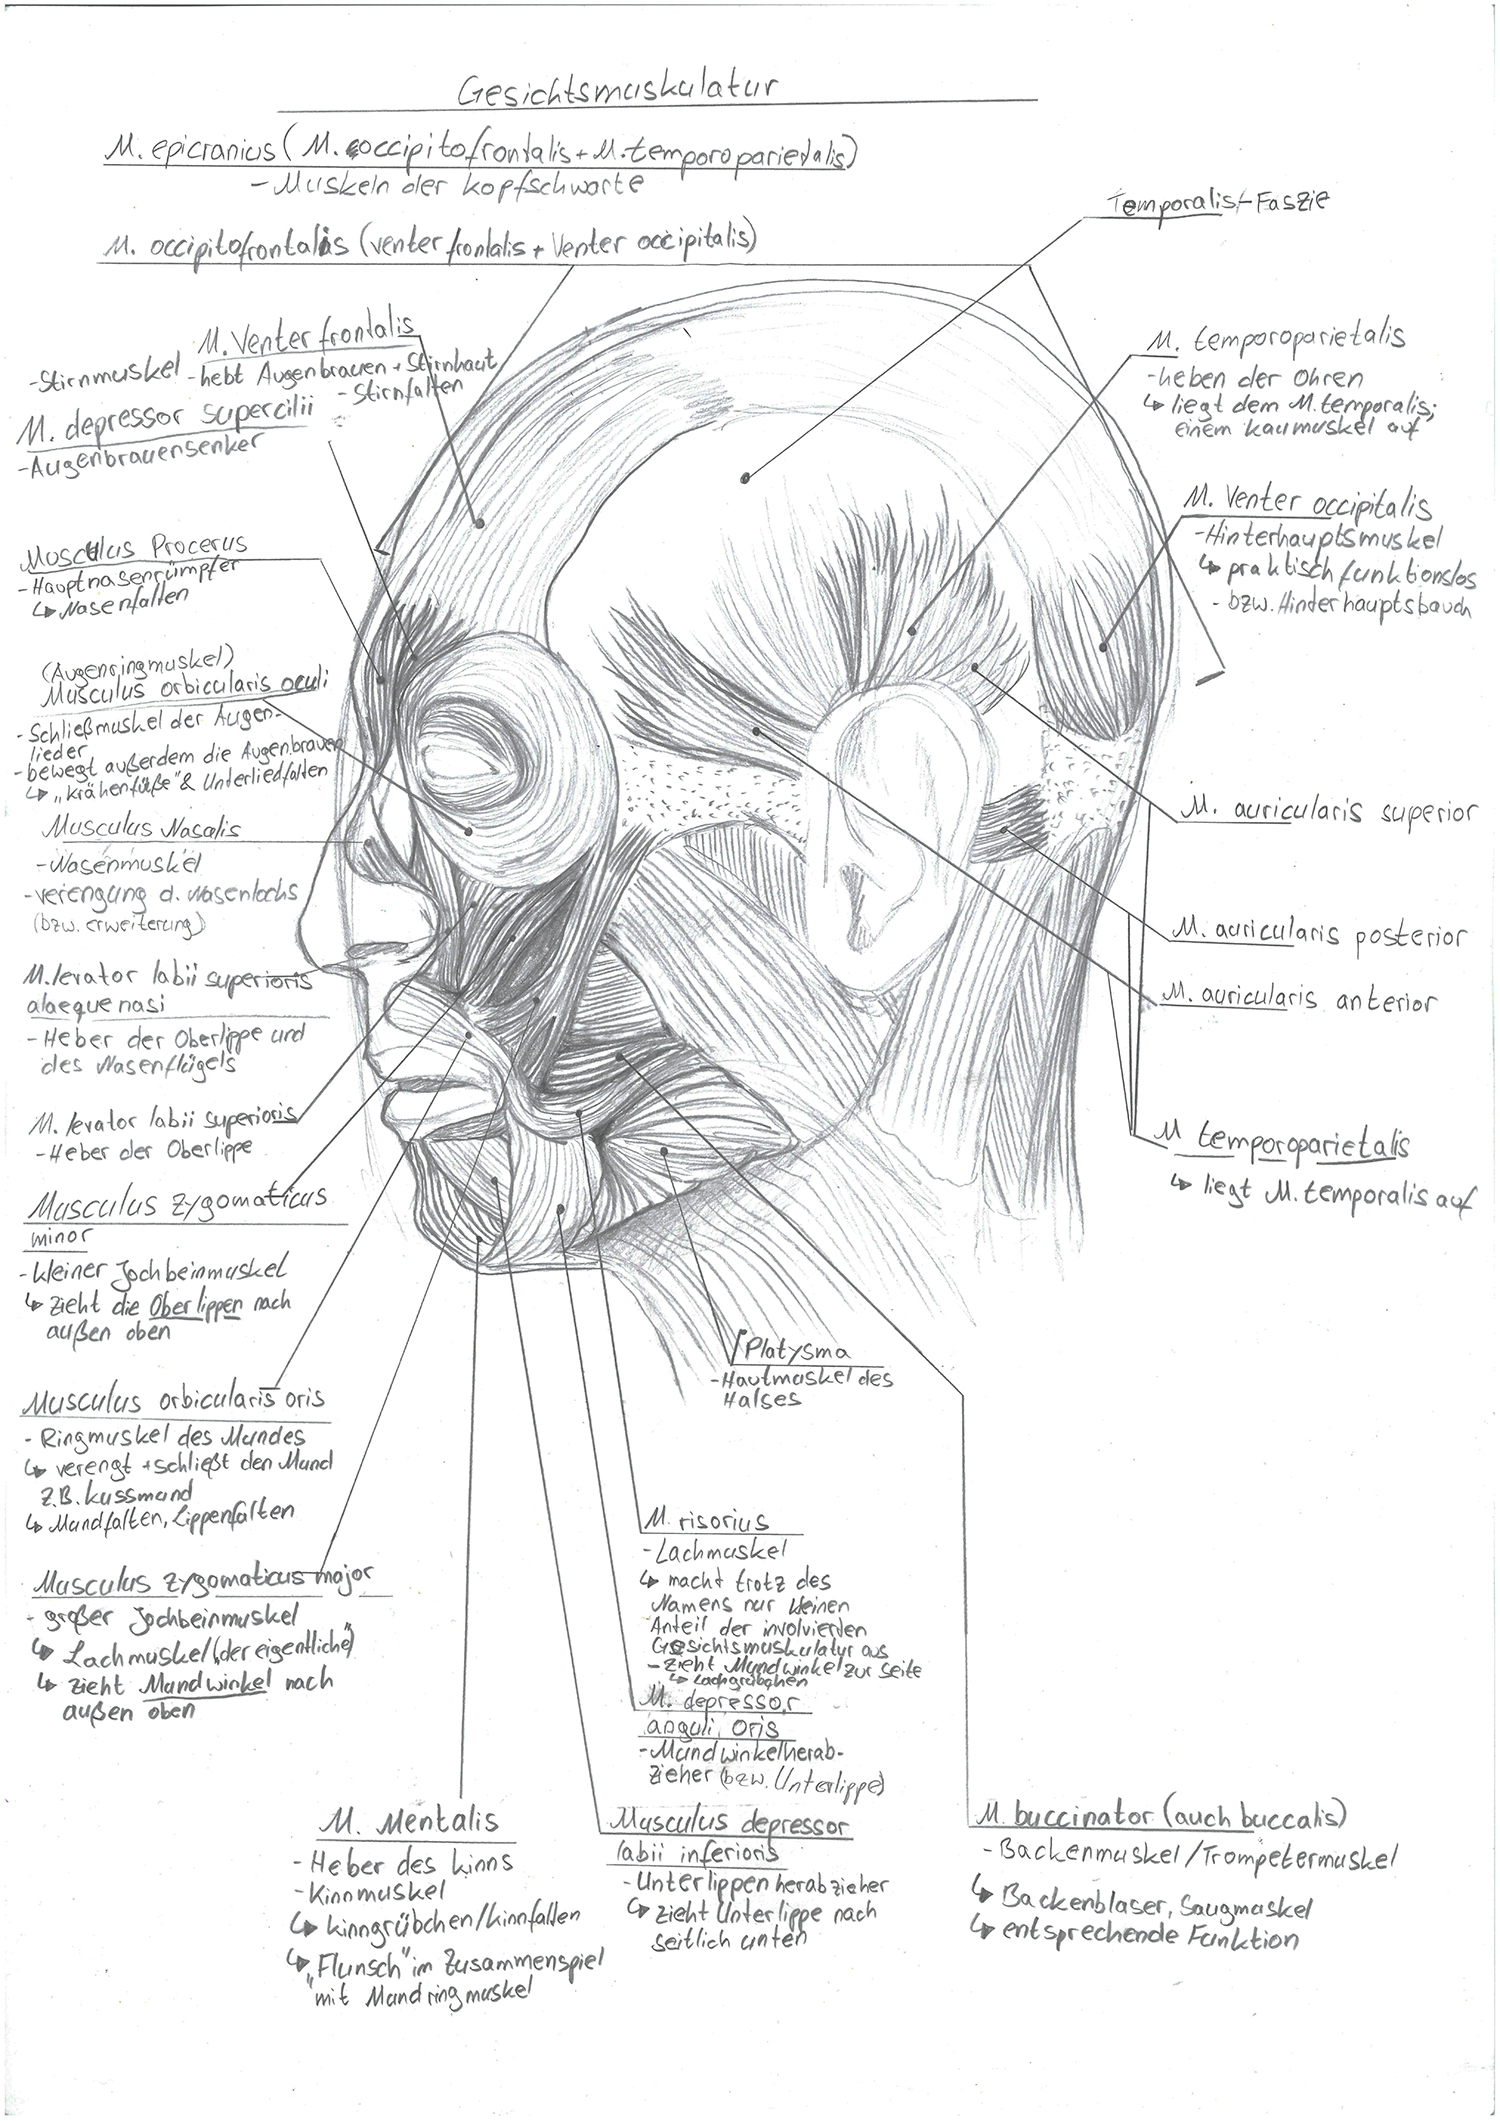 Gesichtsmuskulatur
M. epicranius (M. occipitofrontalis + M. temporoparietalis)
- Muskeln der Kopfschwarte
M. occipitofrontalis (venter frontalis + Venter occipitalis)
Temporalis-Faszie
M. Venter frontalis
- Stirnmuskel - hebt Augenbrauen + Stirnhaut
- Stirnfalten
M. depressor supercilii
- Augenbrauensenker
Musculus Procerus
- Hauptnasenrümpfer
↳ Nasenfalten
(Augenringmuskel)
Musculus orbicularis oculi
- Schließmuskel der Augen-
lieder
- bewegt außerdem die Augenbrauen
↳ „Krähenfüße" & Unterliedfalten
Musculus Nasalis
- Nasenmuskel
- Verengung d. Nasenlochs
(bzw. Erweiterung)
M. levator labii superioris
alaeque nasi
- Heber der Oberlippe und
des Nasenflügels
M. levator labii superioris
- Heber der Oberlippe
Musculus Zygomaticus
minor
- kleiner Jochbeinmuskel
↳ zieht die Oberlippen nach
außen oben
Musculus orbicularis oris
- Ringmuskel des Mundes
↳ verengt + schließt den Mund
z.B. Kussmund
↳ Mundfalten, Lippenfalten
Musculus zygomaticus major
- großer Jochbeinmuskel
↳ Lachmuskel („der eigentliche")
↳ zieht Mundwinkel nach
außen oben
M. temporoparietalis
- heben der Ohren
↳ liegt dem M. temporalis;
einem Kaumuskel auf
M. Venter occipitalis
- Hinterhauptsmuskel
↳ praktisch funktionslos
- bzw. Hinterhauptsbauch
M. auricularis superior
M. auricularis posterior
M. auricularis anterior
M temporoparietalis
↳ liegt M. temporalis auf
Platysma
- Hautmuskel des
Halses
M. risorius
- Lachmuskel
↳ macht trotz des
Namens nur kleinen
Anteil der involvierten
Gesichtsmuskulatur aus
- zieht Mundwinkel zur Seite
↳ Lachgrübchen
M. depressor
anguli oris
- Mundwinkelherab-
zieher (bzw. Unterlippe)
M. Mentalis
- Heber des Kinns
- Kinnmuskel
↳ Kinngrübchen/Kinnfalten
↳ „Flunsch" im Zusammenspiel
mit Mundringmuskel
Musculus depressor
labii inferioris
- Unterlippenherabzieher
↳ zieht Unterlippe nach
seitlich unten
M. buccinator (auch buccalis)
- Backenmuskel/Trompetermuskel
↳ Backenblaser, Saugmuskel
↳ entsprechende Funktion